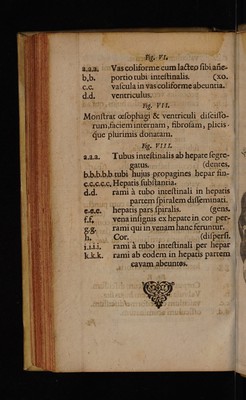 Fig. VI.
a.a.a. Vas coliforme cum lacteo sibi añe-
b.b. portio tubi intestinalis. (xo.
c.c. vascula in vas coliforme abeuntia.
d.d. ventriculus.
Fig. VII.
Monstrat œsophagi & ventriculi discisso-
rum, faciem internam, fibrosam, plicis-
que plurimis donatam.
Fig. VIII.
a.a.a. Tubus intestinalis ab hepate segre-
gatus. (dentes.
b.b.b.b.b. tubi hujus propagines hepar fin-
c.c.c.c.c. Hepatis substantia.
d.d. rami à tubo intestinali in hepatis
partem spiralem disseminati.
e.e.e. hepatis pars spiralis. (gens.
f.f. vena insignis ex hepate in cor per-
g.g. rami qui in venam hanc feruntur.
h. Cor. (dispersi.
i.i.i.i. rami à tubo intestinali per hepar
k.k.k. rami ab eodem in hepatis partem
cavam abeuntes.